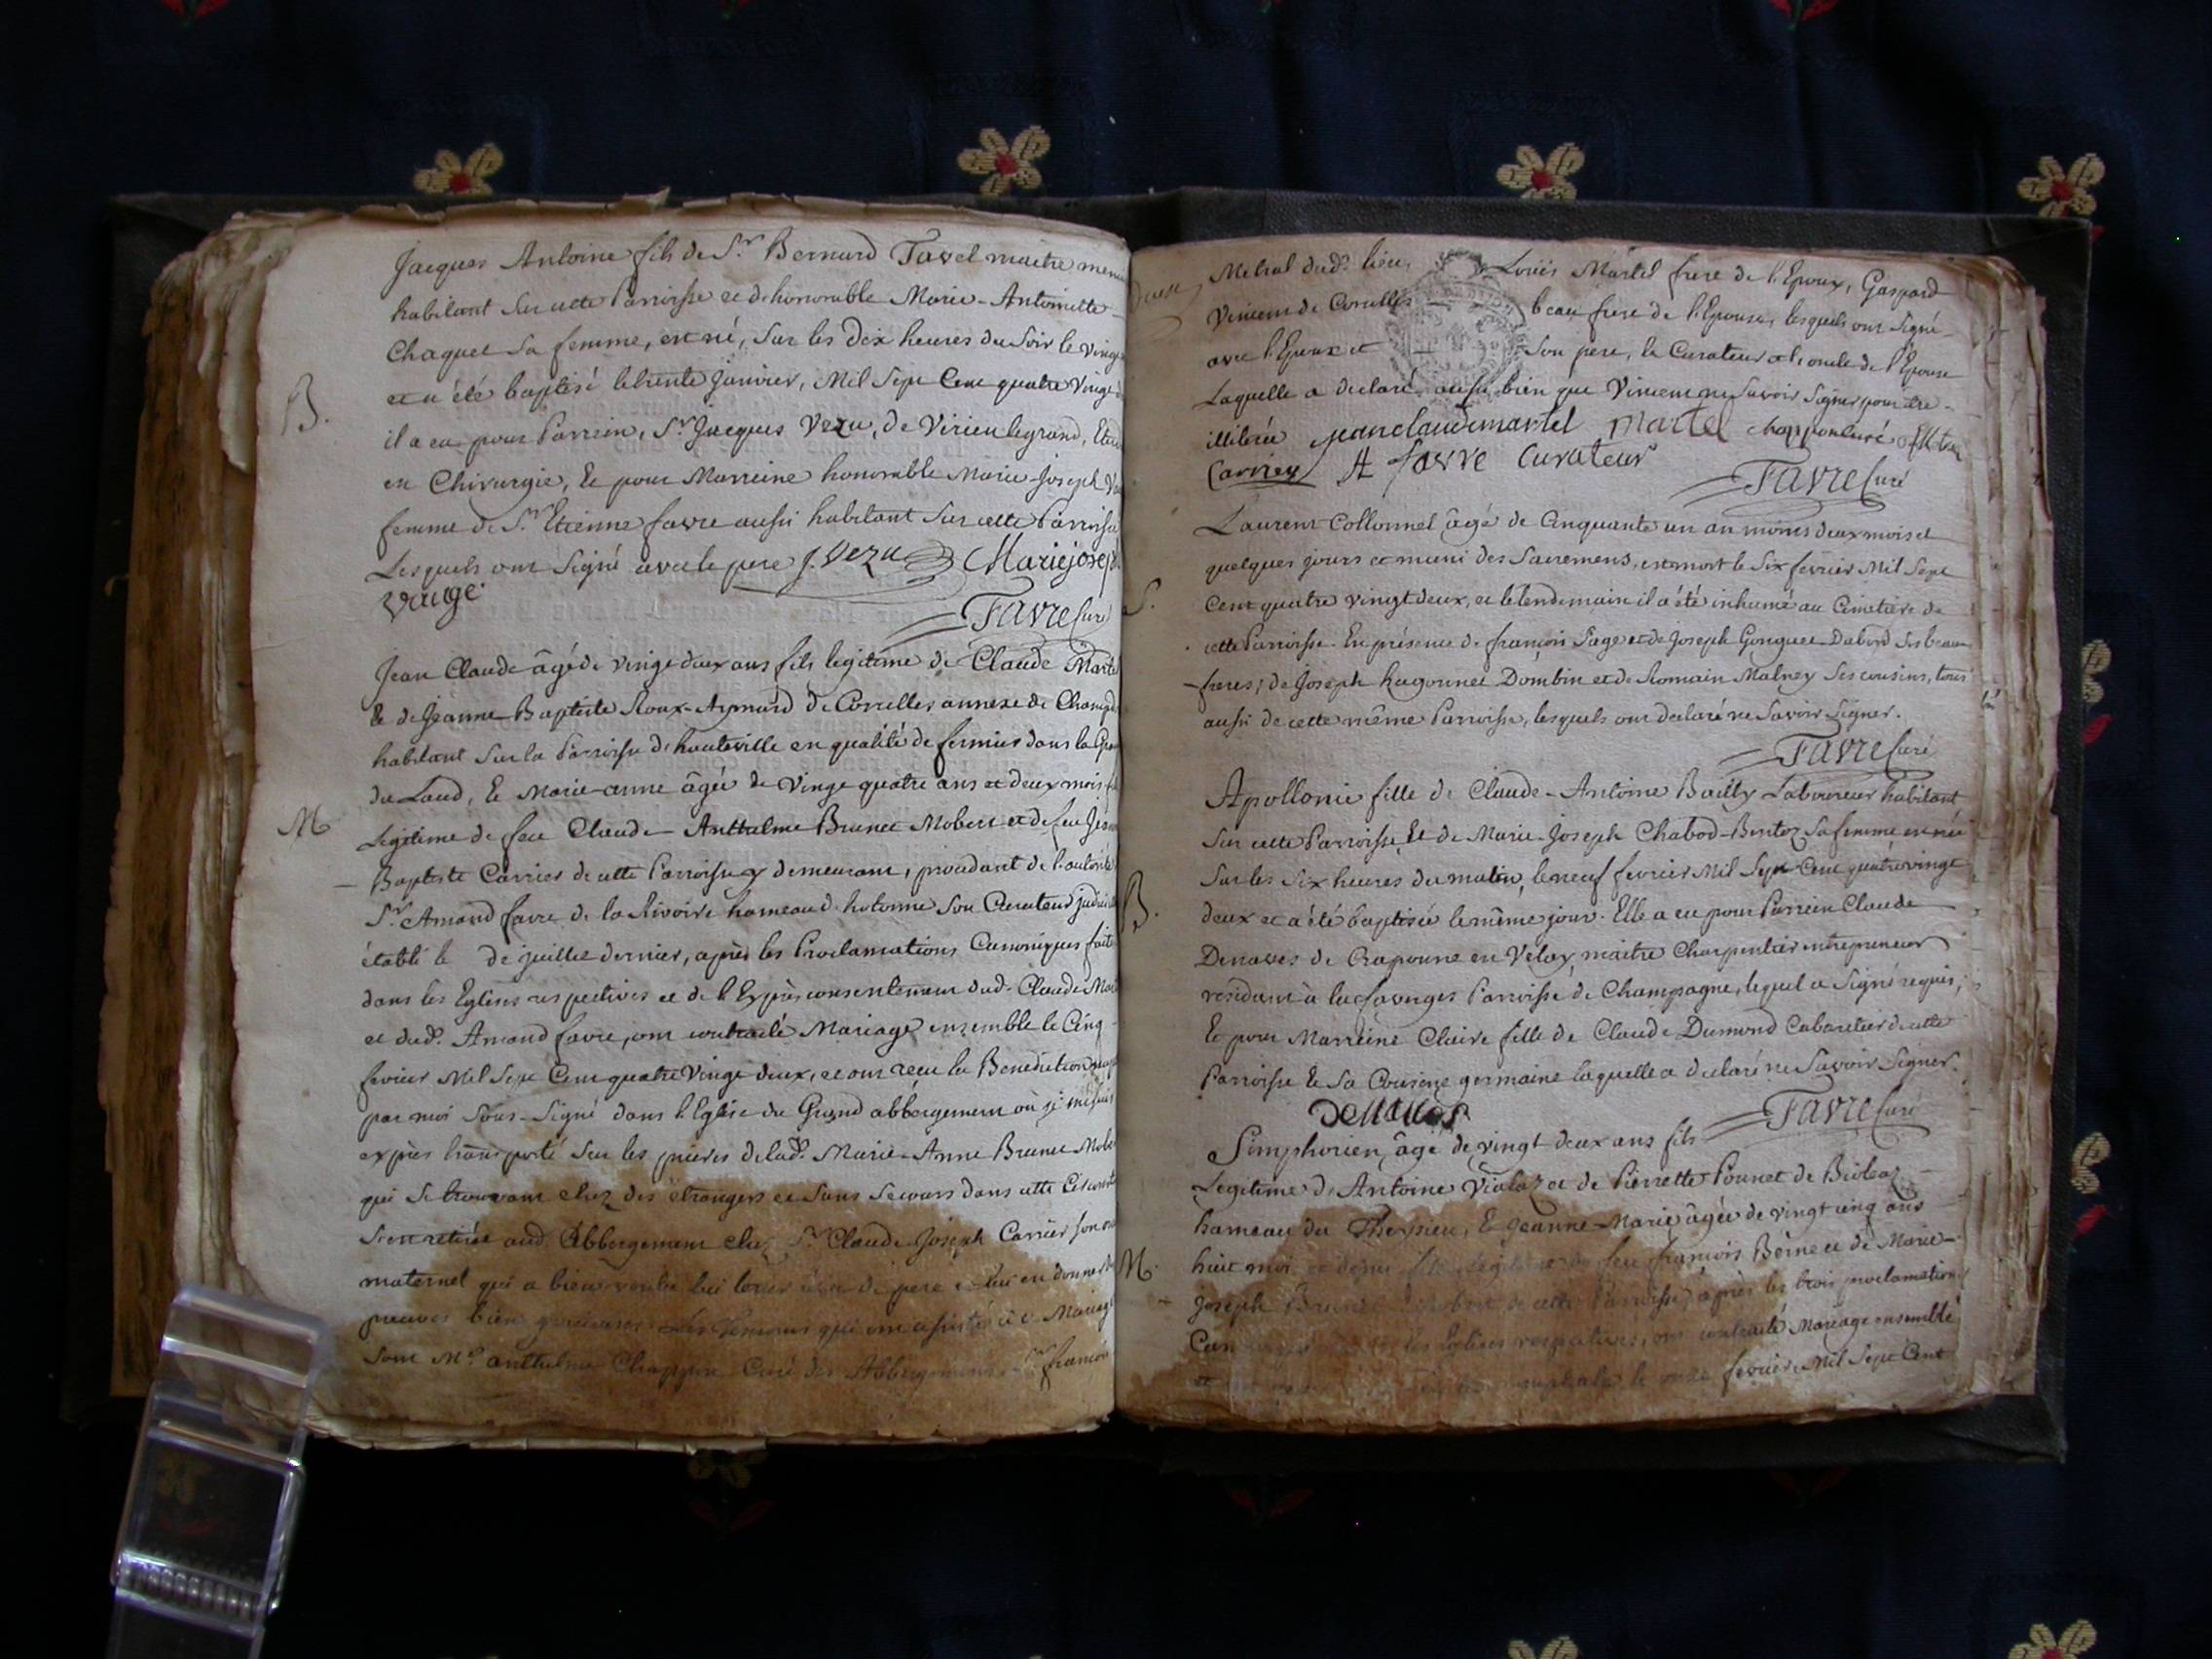 Jacques Antoine fils de Sr. Bernard Tavel maitre
habitant sur cette Parroisse et de honorable Marie-Antoinette
Chaquet sa femme, est né, sur les dix heures du soir le vingt
et a été baptisé le trente Janvier, Mil Sept Cent quatre vingt
B.
il a eu pour Parrein, Sr. Jacques Vezu, de Virieu legrand,
en Chirurgie, Et pour Marreine honorable Marie-Joseph
femme de Sr. Etienne favre aussi habitant sur cette Parroisse
Lesquels ont signé avec le pere J. Vezu Mariejoseph
FAVRE Curé
Jean Claude âgé de vingt deux ans fils legitime de Claude Martel
Et de Jeanne-Baptiste Roux-Aymard de Corcelles annexe de
habitant sur la Parroisse d'hauteville en qualité de fermier dans la
du Laud, Et Marie-anne âgée de Vingt quatre ans et deux mois
M
Legitime de feu Claude-Anthelme Brunet Mobert et de feu
Baptiste Carrier de cette Parroisse y demeurant, procedant de l'autorité
Sr. Amand favre de la Rivoire hameau d'hotonne son Curateur
établi le de juillet dernier, après les Proclamations Canoniques
dans les Eglises respectives et de l'Exprès consentement dud. Claude
et dud. Amand favre, ont contracté Mariage ensemble le Cinq
fevrier Mil Sept Cent quatre Vingt deux, et ont reçu la Benediction
par moi Sous-Signé dans l'Eglise du Grand abbergement où je me suis
exprès transporté sur les prieres de lad. Marie-Anne Brunet
qui se trouvant chez des étrangers et sans secours dans cette
s'est retirée aud. Abbergement chez Sr. Claude-Joseph Carrier son
maternel qui a bien voulu lui tenir lieu de pere et lui en donner
preuves bien Les Temoins qui ont assisté à ce Mariage
sont Mr. anthelme Chappon Curé des Abbergemens, Sr. francois
Metral dud. lieu, Louis Martel frere de l'Epoux, Gaspard
Vincent de Corcelles beau frere de l'Epouse, lesquels ont signé
avec l'Epoux et son pere, le Curateur et l'oncle de l'Epouse
Laquelle a declaré aussi bien que Vincent ne savoir signer pour être
illiterée jeanclaudemartel martel chappon curé
Carrier A favre Curateur
FAVRE Curé
Laurent Collonnel âgé de Cinquante un an moins deux mois et
quelques jours et muni des Sacremens, est mort le Six fevrier Mil Sept
S.
Cent quatre vingt deux, et le lendemain il a été inhumé au Cimetiere de
cette Parroisse. En présence de francois Page et de Joseph Gonguet-Dabord ses beau
freres, de Joseph hugonnet Dombin et de Romain Malney ses cousins, tous
aussi de cette même Parroisse, lesquels ont declaré ne Savoir signer.
FAVRE Curé
Apollonie fille de Claude-Antoine Bailly Laboureur habitant
sur cette Parroisse, Et de Marie-Joseph Chabod-Bentoz sa femme est née
sur les six heures du matin, le neuf fevrier Mil Sept Cent quatre vingt
B.
deux et a été baptisée le même jour. Elle a eu pour Parrein Claude
Denaves de Craponne en Velay maitre Charpentier entrepreneur
residant à la favergés Parroisse de Champagne, lequel a signé requis;
Et pour Marreine Claire fille de Claude Dumond Cabaretier de cette
Parroisse Et sa Cousine germaine laquelle a declaré ne Savoir Signer.
FAVRE Curé
Simphorien, âgé de vingt deux ans fils
Legitime d'Antoine Vialaz et de Pierrette Pounet de Bioleaz
hameau du Thezieu, Et Jeanne-Marie âgée de vingt cinq ans
M.
huit mois et demi fille Legitime de feu francois Berne et de Marie-
Joseph Brunet de cette Parroisse, après les trois proclamations
les Eglises respectives, ont contracté Mariage ensemble
et le onze fevrier Mil Sept Cent